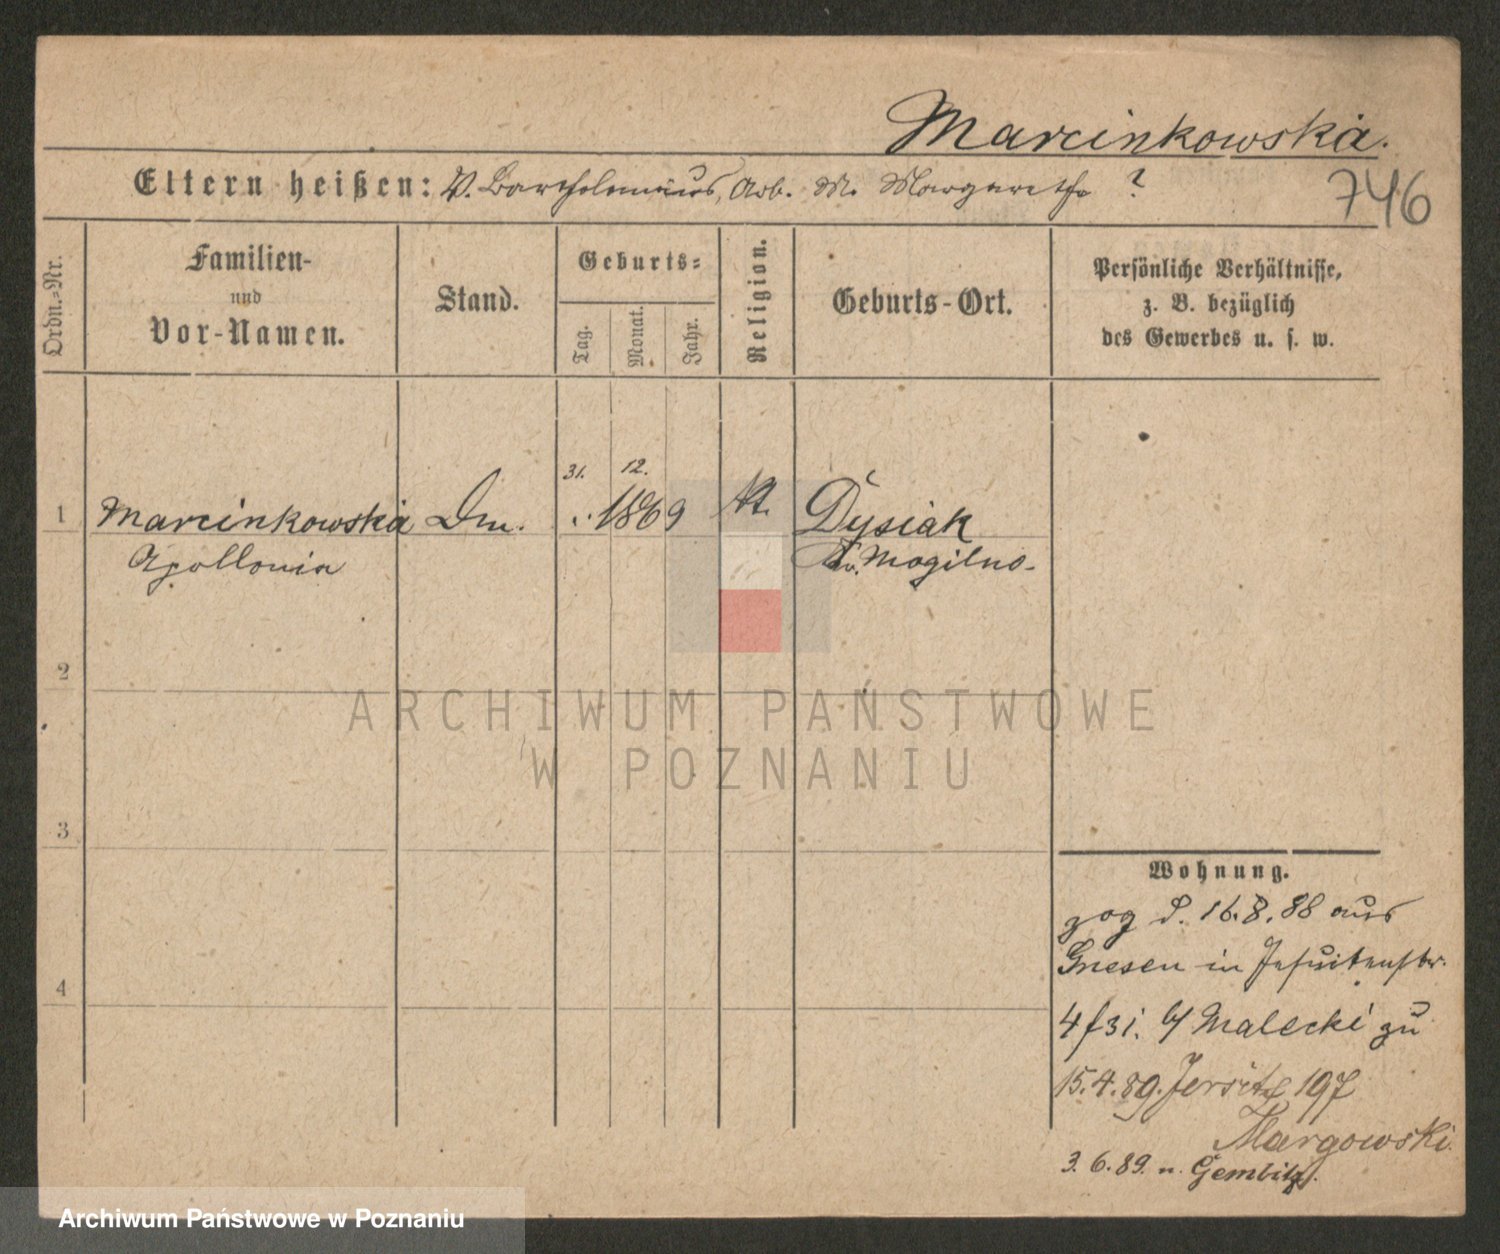 Marcinkowska.
Eltern heißen: V. Bartholomäus, Arb. M. Margaretha ?
746
Ordn.-Nr.
Familien-
und
Vor-Namen.
Stand.
Geburts-
Tag.
Monat.
Jahr.
Religion.
Geburts-Ort.
Persönliche Verhältnisse,
z. B. bezüglich
des Gewerbes u. s. w.
31. 12.
1 Marcinkowska 1869 kt. Dysiak
Apollonia Kr. Mogilno.
2
ARCHIWUM PAŃSTWOWE
W POZNANIU
3
Wohnung.
zog d. 16.8.88 aus
Gnesen in Jesuitenstr.
4
Malecki zu
15.4.89. Jersitz 197
Margowski
3.6.89. n. Gembitz.
Archiwum Państwowe w Poznaniu